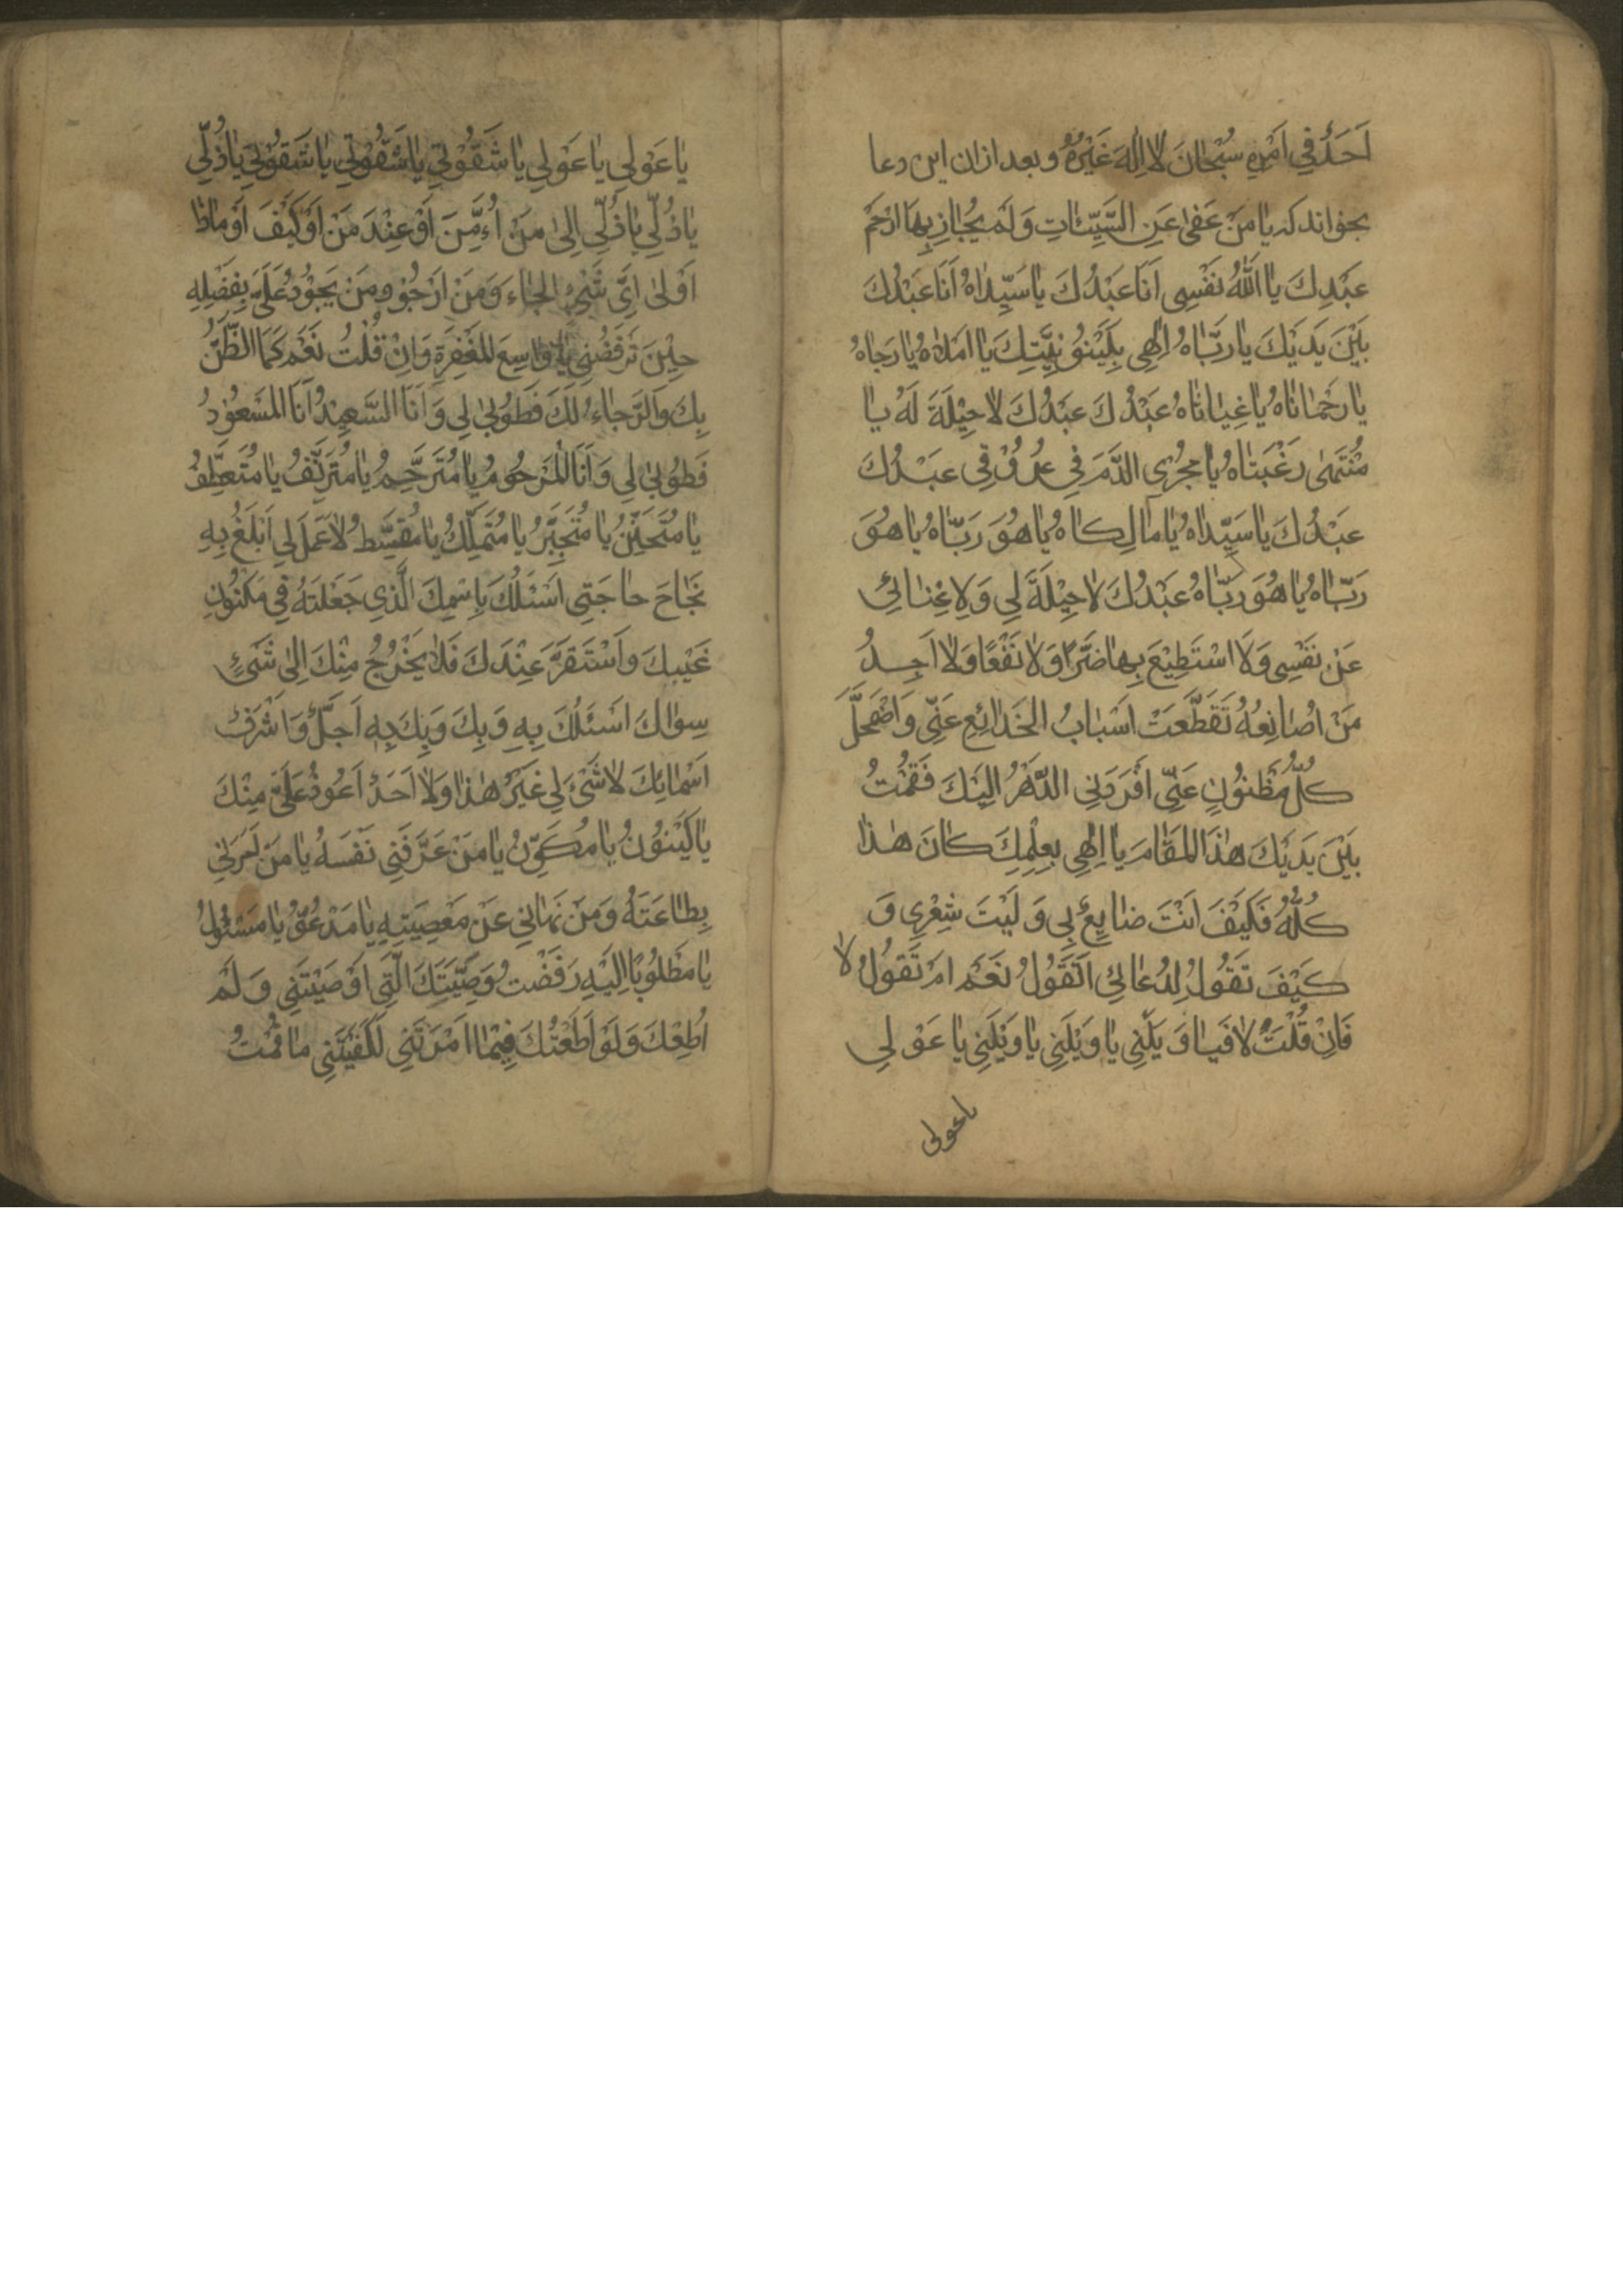 اَحَدٌ فِي اَمْرِهِ سُبْحَانَ لَا اِلٰهَ غَيْرُهُ وبعد ازان این دعا
بخواند که يَا مَنْ عَفىٰ عَنِ السَّيِّئَاتِ وَلَمْ يُجَازِ بِهَا ارْحَمْ
عَبْدِكَ يَا اَللّٰهُ نَفْسِي اَنَا عَبْدُكَ يَا سَيِّدَاهُ اَنَا عَبْدُكَ
بَيْنَ يَدَيْكَ يَا رَبَّاهُ اِلٰهِي بِكَيْنُونِيَّتِكَ يَا اَمَلَاهُ يَا رَجَاهُ
يَا رَحْمَانَاهُ يَا غِيَاثَاهُ عَبْدُكَ عَبْدُكَ لَا حِيْلَةَ لَهُ يَا
مُنْتَهىٰ رَغْبَتَاهُ يَا مُجْرِيَ الدَّمَ فِي عُرُوْقِي عَبْدُكَ
عَبْدُكَ يَا سَيِّدَاهُ يَا مَالِكَاهُ يَا هُوَ رَبَّاهُ يَا هُوَ
رَبَّاهُ يَا هُوَ رَبَّاهُ عَبْدُكَ لَا حِيْلَةَ لِي وَلَا غِنَائِي
عَنْ نَفْسِي وَلَا اَسْتَطِيْعُ بِهَا ضَرًّا وَلَا نَفْعًا وَلَا اَجِدُ
مَنْ اُصَانِعُهُ تَقَطَّعَتْ اَسْبَابُ الخَدَائِعِ عَنِّي وَاضْمَحَلَّ
كُلُّ مَظْنُوْنٍ عَنِّي اَفْرَدَنِي الدَّهْرُ اِلَيْكَ فَقُمْتُ
بَيْنَ يَدَيْكَ هٰذَا المَقَامَ يَا اِلٰهِي بِعِلْمِكَ كَانَ هٰذَا
كُلُّهُ فَكَيْفَ اَنْتَ صَانِعٌ بِي وَلَيْتَ شِعْرِي وَ
كَيْفَ تَقُوْلُ لِدُعَائِي اَتَقُوْلُ نَعَمْ اَمْ تَقُوْلُ لَا
فَاِنْ قُلْتَ لَا فَيَا وَيْلَتِي يَا وَيْلَتِي يَا وَيْلَتِي يَا عَوْلِي
يا عولى
يَا عَوْلِي يَا عَوْلِي يَا شَقْوَتِي يَا شَقْوَتِي يَا شَقْوَتِي يَا ذُلِّي
يَا ذُلِّي يَا ذُلِّي اِلىٰ مَنْ اَوْ مِمَّنَ اَوْ عِنْدَ مَنْ اَوْ كَيْفَ اَوْ مَاذَا
اَوْ اِلىٰ اَيِّ شَيْءٍ اَلْجَاءُ وَمَنْ اَرْجُوْ وَمَنْ يَجُوْدُ عَلَيَّ بِفَضْلِهِ
حِيْنَ تَرْفَضُنِي يَا وَاسِعَ المَغْفِرَةِ وَاِنْ قُلْتَ نَعَمْ كَمَا الظَّنُّ
بِكَ وَالرَّجَاءُ لَكَ فَطُوْبىٰ لِي وَاَنَا السَّعِيْدُ اَنَا المَسْعُوْدُ
فَطُوْبىٰ لِي وَاَنَا المَرْحُوْمُ يَا مُتَرَحِّمُ يَا مُتَرَئِّفُ يَا مُتَعَطِّفُ
يَا مُتَحَنِّنُ يَا مُتَجَبِّرُ يَا مُتَمَلِّكُ يَا مُقْسِطُ لَا عَمَلَ لِي اَبْلُغُ بِهِ
نَجَاحَ حَاجَتِي اَسْئَلُكَ بِاِسْمِكَ الَّذِي جَعَلْتَهُ فِي مَكْنُوْنِ
غَيْبِكَ وَاَسْتَقَرَّ عِنْدَكَ فَلَا يَخْرُجُ مِنْكَ اِلىٰ شَيْءٍ
سِوَاكَ اَسْئَلُكَ بِهِ وَبِكَ وَبِكَ بِهِ اَجَلُّ وَاَشْرَفُ
اَسْمَائِكَ لَا شَيْءَ لِي غَيْرُ هٰذَا وَلَا اَحَدٌ اَعْوَدُ عَلَيَّ مِنْكَ
يَا كَيْنُوْنُ يَا مُكَوِّنُ يَا مَنْ عَرَّفَنِي نَفْسَهُ يَا مَنْ اَمَرَنِي
بِطَاعَتِهُ وَمَنْ نَهَانِي عَنْ مَعْصِيَتِهِ يَا مَدْعُوُّ يَا مَسْئُوْلُ
يَا مَطْلُوْبًا اِلَيْهِ رَفَضْتُ وَصِيَّتَكَ الَّتِي اَوْصَيْتَنِي وَلَمْ
اُطِعْكَ وَلَوْ اَطَعْتُكَ فِيْمَا اَمَرْتَنِي لَكَفَيْتَنِي مَا قُمْتُ